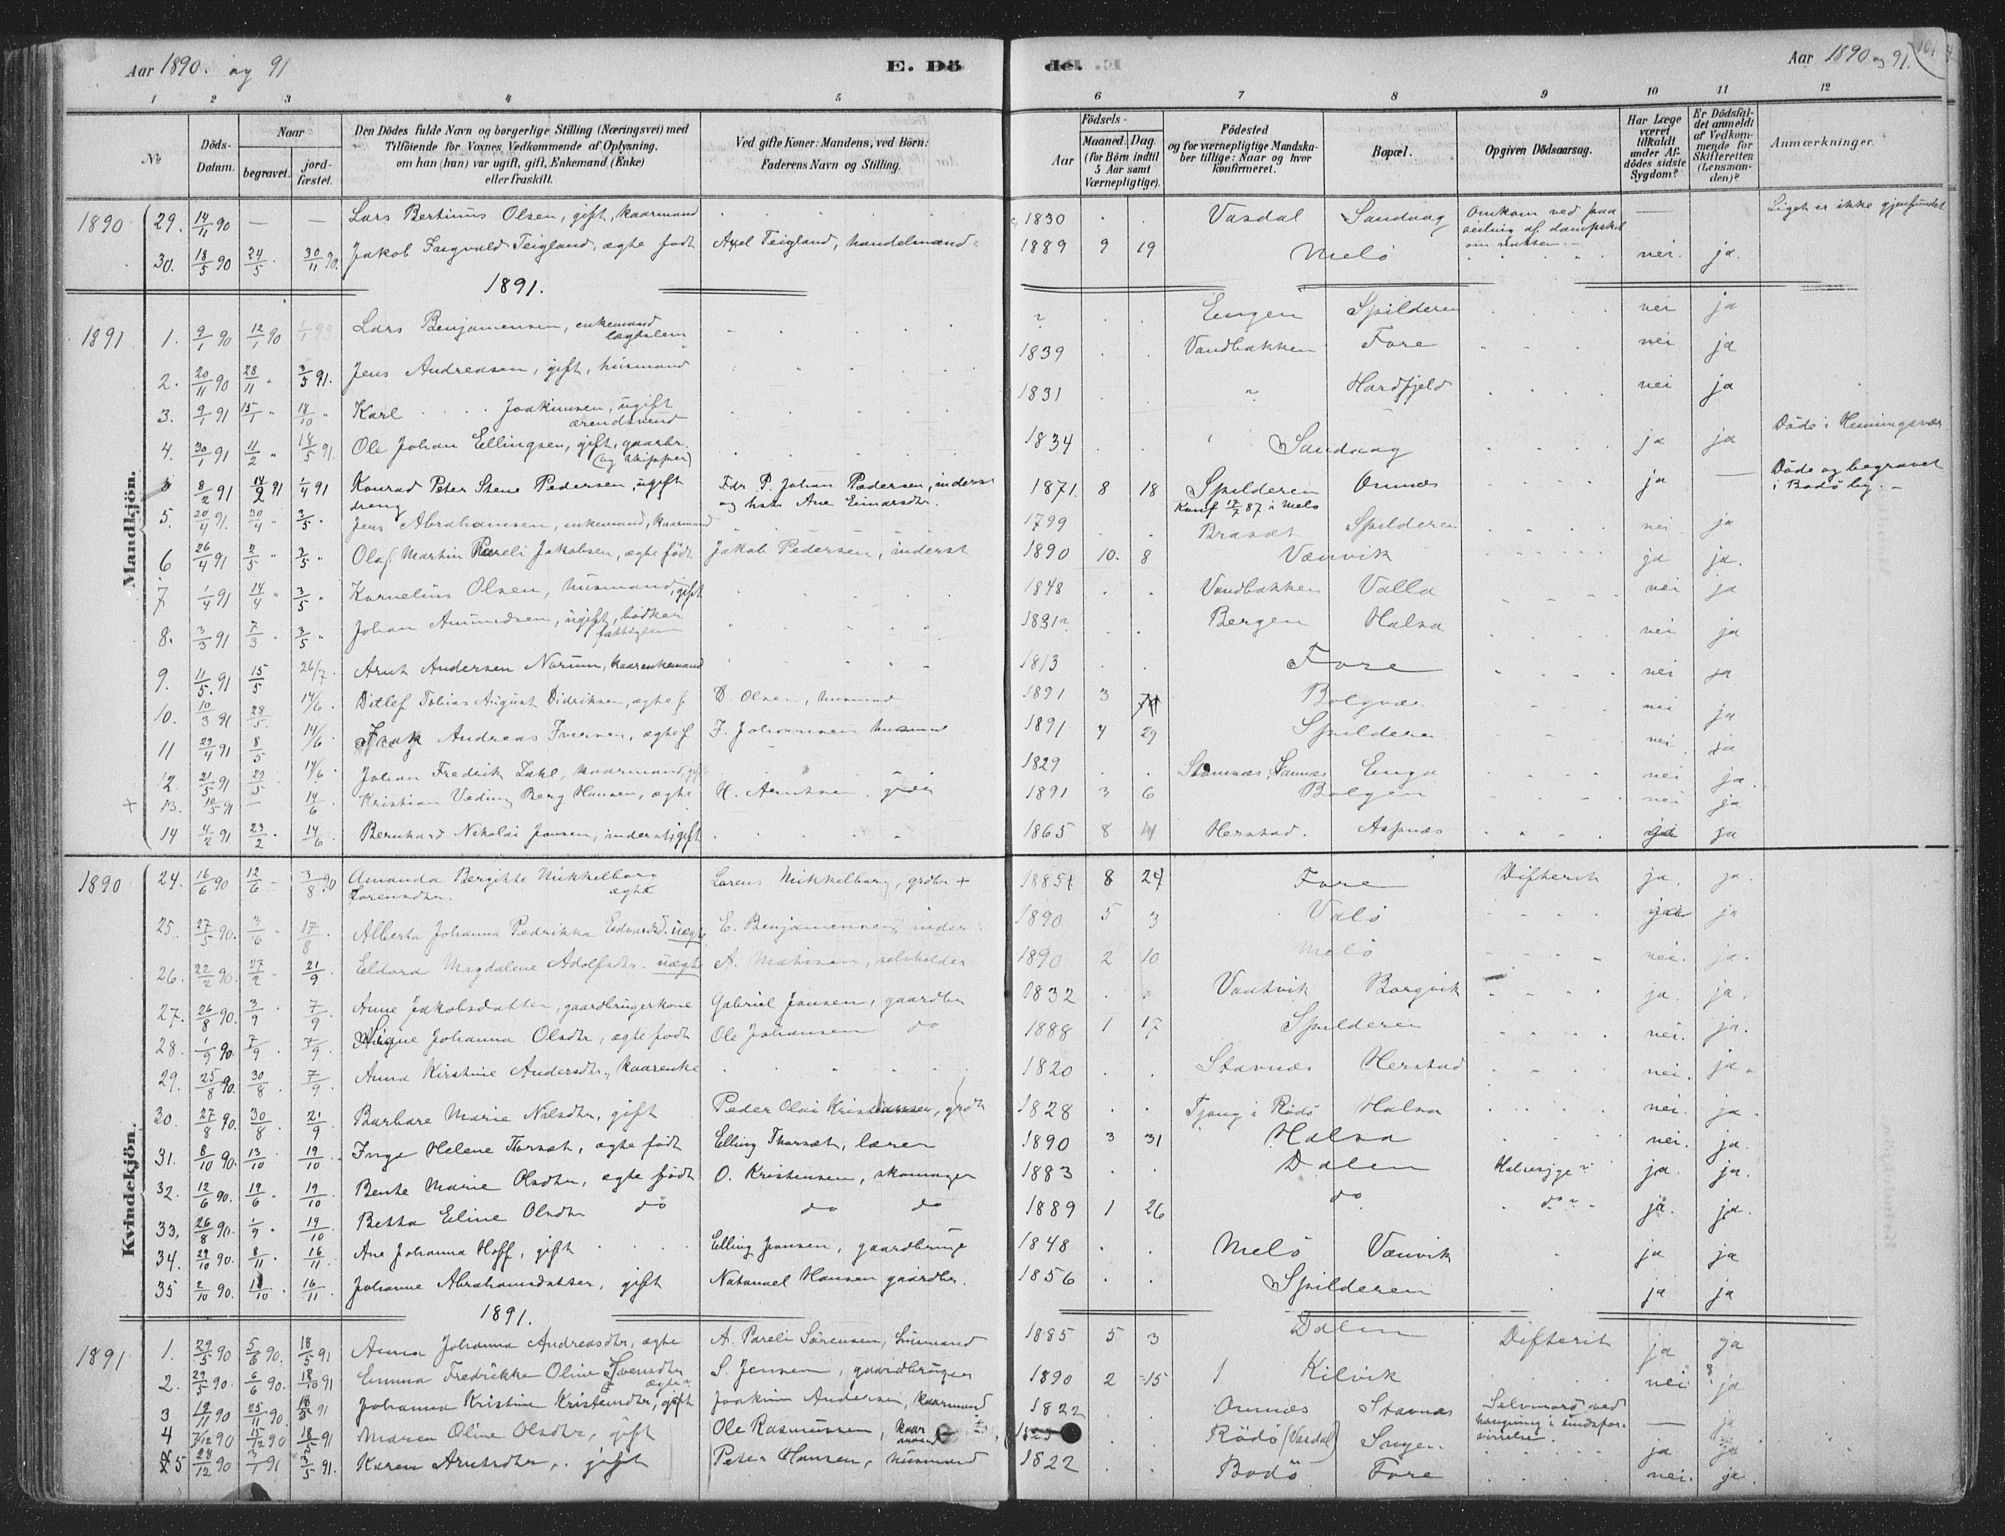 Aar 1890. og 91
E. Dö
de.
Aar 1890 og 91.
1 2 3 4 5 6 7 8 9 10 11 12
No
Döds-Datum.
Naar
begravet.
jord-fæstet.
Den Dödes fulde Navn og borgerlige Stilling (Næringsvei) med
Tilföiende for Voxnes Vedkommende af Oplysning.
om han (hun) var ugift, gift, Enkemand (Enke)
eller fraskilt.
Ved gifte Koner: Mandens, ved Börn:
Faderens Navn og Stilling.
Födsels-
Aar
Maaned.
Dag
(for Börn indtil
5 Aar samt
Værnepligtige).
Födested
og for værnepligtige Mandska-
ber tillige: Naar og hvor
konfirmeret.
Bopæl.
Opgiven Dödsaarsag.
Har Læge
været
tilkaldt
under Af-
dödes sidste
Sygdom?
Er Dödsfal-
det anmeldt
af Vedkom-
mende for
Skifteretten
(Lensman-
den)?
Anmærkninger.
Mandkjön.
1890 29. 14/11 90 — — Lars Bertinus Olsen, gift, kaarmand 1830 Vasdal Sandvaag Omkom ved paaseiling af dampskib om natten. — Liget er ikke gjenfundet
30. 18/5 90 24/5 30/11 90. Jakob Teigland, ægte født Axel Teigland, handelsmand 1889 9 19 Melö nei. ja.
1891.
1891 1. 9/1 90 12/1 90 Lars Benjamensen, enkemand lægdslem Engen Spilderen nei ja
2. 20/11 90 28/11 " 3/5 91. Jens Andreasen, gift, husmand 1839 Vandbakken Fore nei ja
3. 9/1 91 15/1 " 18/10 " Karl Joakimsen, ugift 1831 " Hardfjeld nei ja
4. 30/1 91 11/2 " 18/5 91. Ole Johan Ellingsen, gift, gaardbr. (og skipper) 1834 Sandvaag ja ja Döde i Henningsvær
8/2 91 14/2 91 1/4 91 Konrad Peter Stene Pedersen, ugift dreng Fdr. P. Johan Pedersen, inderst og hst. Ane Einarsdtr. 1871. 8 18 Spilderen Konf 17/7 87 i Melö Ornnes ja — Döde og begravet i Bodö by. —
5. 20/4 91. 30/4 " 3/5 " Jens Abrahamsen, enkemand, kaarmand 1799 Braset Spilderen nei ja
6 26/4 91 2/5 " 3/5 " Olaf Martin Pareli Jakobsen, ægte født Jakob Pedersen, inderst 1890 10. 8 Vænvik ja ja.
7 1/4 91 14/4 " 3/5 " Kornelius Olsen, husmand, gift 1848 Vandbakken Valla nei ja
8. 3/3 91 7/3 " 3/5 " Johan Amundsen, ugift, bödker fattiglem 1831 Bergen Halsa nei ja
9. 11/5. 91 15/5 26/7 Arnt Andersen Norum, kaarenkemand 1813 Fore nei ja
10. 10/3 91 28/5. 14/6 Ditlef Tobias August Didriksen, ægte f. D. Olsen, husmand 1891 3 Bolgvær nei ja
11 29/4 91 8/5 14/6 Isak Andreas Iversen, ægte f I. Johannesen husmand 1891 4 29 Spilderen nei. ja
12. 21/5 91 29/5 14/6 Johan Fredrik Zahl, kaarmand, gift 1829 Stamnæs, Sannæs Enga nei ja.
+ 13. 10/5 91 — 14/6 Kristian Veding Berg Hansen, ægte H. Arntsen, 1891 3 6 Bolgen nei ja
14 4/2 91 23/2 14/6 Bernhard Nikolai Jensen, inderst, gift 1865 8 Herstad. Aspnæs ja
Kvindekjön.
1890 24. 16/6 90 12/6 3/8 90 Amanda Bergitte Mikkelborg Lorensdtr. ægte Lorens Mikkelborg, grdbr + 1885 8 24 Fore Difterit ja. ja.
25. 27/5 90. 3/6 17/8 Alberta Johanna Fredrikka Edvardsd. uægte E. Benjamensen, inder 1890 5 3 Valö ja
26. 22/2 90. 27/2 21/9 Eldora Magdalene Adolfsdtr. uægte A. Mathisen, selvholder 1890 2 10 Melö nei. ja.
27. 26/8 90. 3/9 7/9 Anne Jakobsdatter, gaardbrugerkone Gabriel Jensen, gaardbr 1832 Vaatvik Borgvik ja. ja.
28. 1/9 90. 7/9 7/9. Signe Johanna Olsdtr, ægte født Ole Johansen do 1888 1 17 Spilderen nei. ja.
29. 25/8 90. 30/8. 7/9. Anna Kirstine Andersdtr., kaarenke 1820 Stavnæs Herstad nei. ja.
30. 27/8 90. 30/8. 21/9 Barbare Marie Nilsdtr, gift Peder Olai Kristiansen, grdb 1828 Tjong i Rödö Halsa nei. ja.
31. 8/10 90. 13/10 19/10 Inga Helene Thorsæt, ægte født Elling Thorsæt, lærer 1890 3 31 Halsa nei. ja.
32. 12/6 90. 19/6 19/10 Bente Marie Olsdtr, ægte født O. Kristensen, skomager 1883 Dalen Halssyge ja. ja.
33. 26/8 90. 1/9 19/10 Betta Eline Olsdtr do do do 1889 1 26 do do ja. ja.
34. 29/10 90. 8/11 16/11 Ane Johanna Hoff, gift Elling Jensen, gaardbruge 1848 Melö Vænvik ja ja
35 2/10 90. 10 16/11 Johanne Abrahamsdatter, gift Natanael Hansen gaardbr. 1856 Spilderen ja ja
1891.
1891 1. 29/5 90 5/6 90. 18/5 91 Anna Johanna Andreasdtr, ægte A. Pareli Sörensen, husmand 1885 5 3 Dalen Difterit ja ja
2. 29/5 90. 6/6 90. 18/10 91 Emma Fredrikke Oline Jensdtr ægte S. Jensen, gaardbruger 1890 2 15 Kilvik nei ja
3 19/11 90 25/11 90. 18 91 Johanna Kristine Kristensdtr, gift Joakim Andersen, kaarmand 1822 Ornnes Stavnæs Selvmord ved hængning i sindsforvirrelse. — ja
4 7/12 90 15/12 90 18/5 91 Maren Oline Olsdtr, gift Ole Rasmussen, kaarmand Rödö (Vasdal) ja ja
5 28/12 90 3/1 91 3/5 91. Karen Arntsdtr, gift Peter Hansen, husmand 1822 Bodö Fore nei. ja.